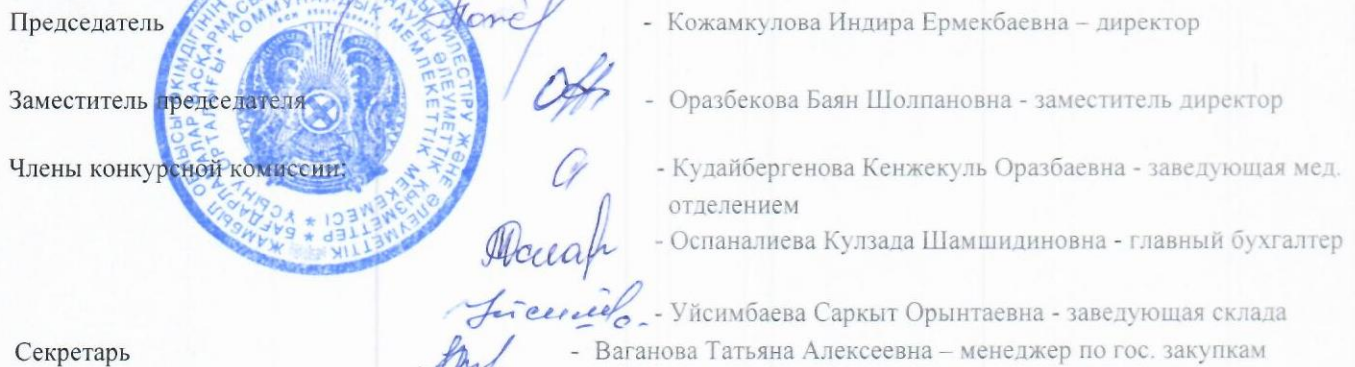 Председатель - Кожамкулова Индира Ермекбаевна – директор
Заместитель председателя - Оразбекова Баян Шолпановна - заместитель директор
Члены конкурсной комиссии: - Кудайбергенова Кенжекуль Оразбаевна - заведующая мед.
отделением
- Оспаналиева Кулзада Шамшидиновна - главный бухгалтер
- Уйсимбаева Саркыт Орынтаевна - заведующая склада
Секретарь - Ваганова Татьяна Алексеевна – менеджер по гос. закупкам